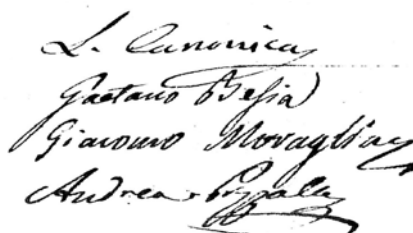 L. Canonica
Gaetano Besia
Giacomo Moraglia
Andrea Pizzala